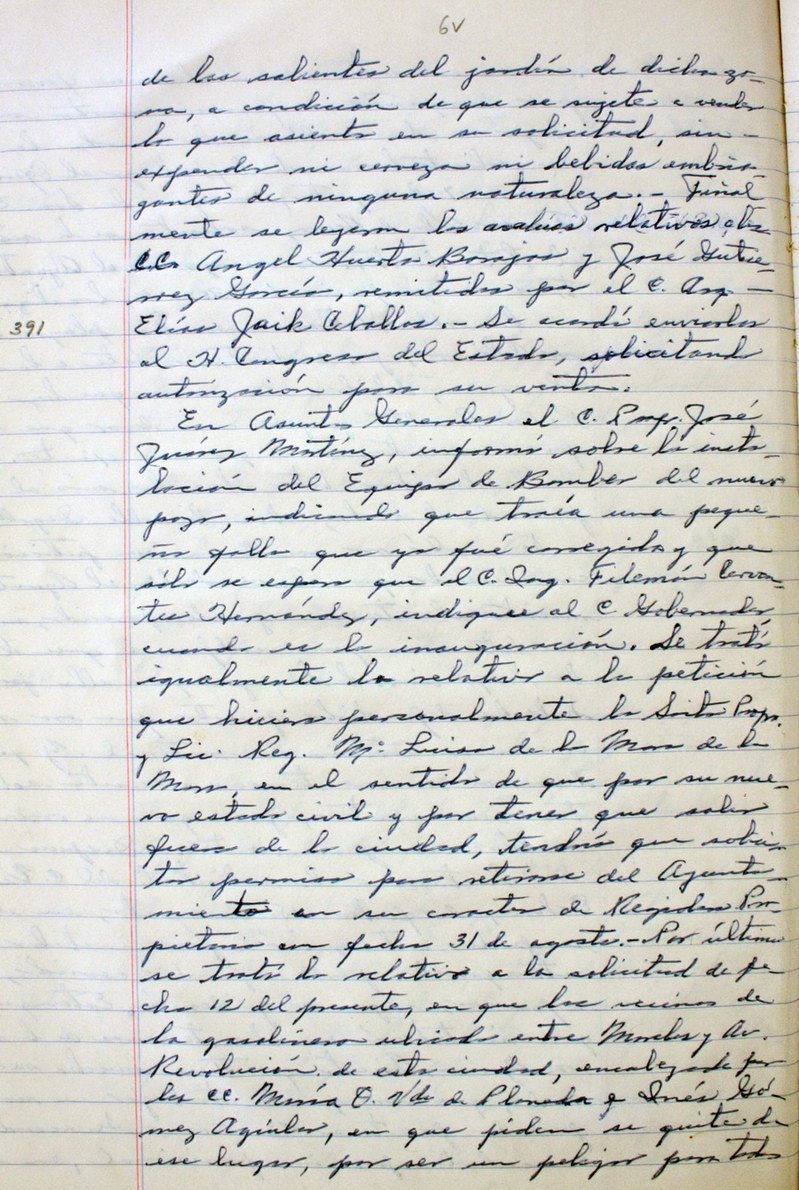 6v
de los salientes del jardín de dicha zo-
na, a condición de que se sujete a vender
lo que asienta en su solicitud, sin -
expender ni cerveza ni bebidas embria-
gantes de ninguna naturaleza.- Final
mente se leyeron los avalúos relativos a los
C.C. Angel Huerta Barajas y José Gutié-
rrez García, remitidos por el C. Arq. -
391
Elías Jaik Ceballos.- Se acordó enviarlos
al H. Congreso del Estado, solicitando
autorización para su venta.
En Asuntos Generales el C. Prof. José
Juárez Martínez, informó sobre la insta-
lación del Equipo de Bombeo del nuevo
pozo, indicando que traía una peque-
ña falla que ya fué corregida y que
sólo se espera que el C. Ing. Filemón Cervan-
tes Hernández, indique al C. Gobernador
cuando es la inauguración. Se trató
igualmente lo relativo a la petición
que hiciera personalmente la Srita Profa.
y Lic. Reg. Ma. Luisa de la Mora de la
Mora, en el sentido de que por su nue-
vo estado civil y por tener que salir
fuera de la ciudad, tendría que solici-
tar permiso para retirarse del Ayunta-
miento en su caracter de Regidora Pro-
pietaria con fecha 31 de agosto.- Por último
se trató lo relativo a la solicitud de fe-
cha 12 del presente, en que los vecinos de
la gasolinera ubicada entre Morelos y Av.
Revolución de esta ciudad, encabezada por
los CC. María O. Vda de y Inés Gó-
mez Aguilar, en que piden se quite de
ese lugar, por ser un peligro para todos